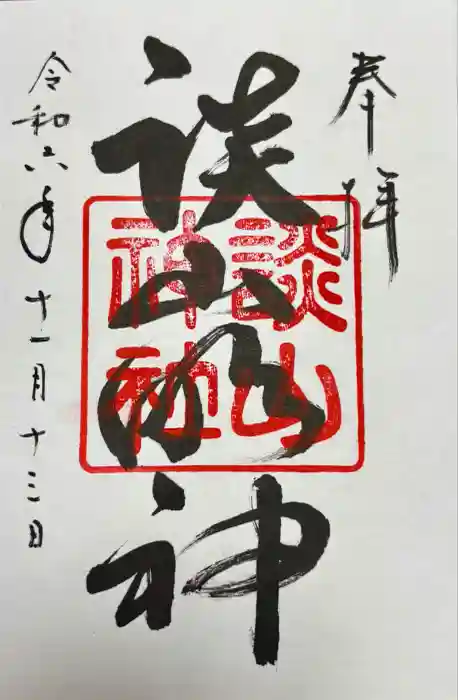 奉拝
談山大明神
談山神社
令和六年十一月十三日